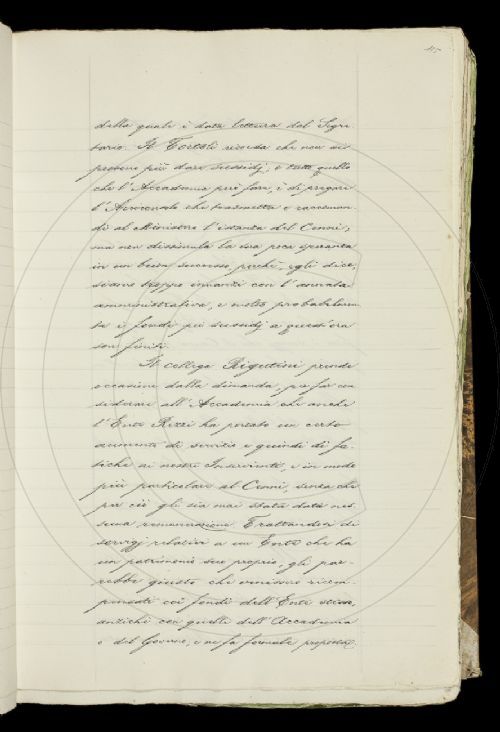 della quale è data lettura dal Segre-
tario. Il Tortoli ricorda che non si
possono più dare sussidj, e tutto quello
che l'Accademia può fare, è di pregare
l'Arciconsolo che trasmetta e raccoman-
di al Ministero l'istanza del Cenni;
ma non dissimula la sua poca speranza
in un buon successo, perchè, egli dice,
siamo troppo innanzi con l'annata
amministrativa, e molto probabilmen-
te i fondi pei sussidj a quest'ora
son finiti.
Il collega Rigutini prende
occasione dalla dimanda, per far con
siderare all'Accademia che anche
l'Ente Rezzi ha portato un certo
aumento di servizio e quindi di fa-
tiche ai nostri Inservienti, e in modo
più particolare al Cenni, senza che
per ciò gli sia mai stata data nes
suna remunerazione. Trattandosi di
servigj relativi a un Ente che ha
un patrimonio suo proprio, gli par-
rebbe giusto che venissero ricom-
pensati coi fondi dell'Ente stesso,
anzichè con quelli dell'Accademia
o del Governo, e ne fa formale proposta.